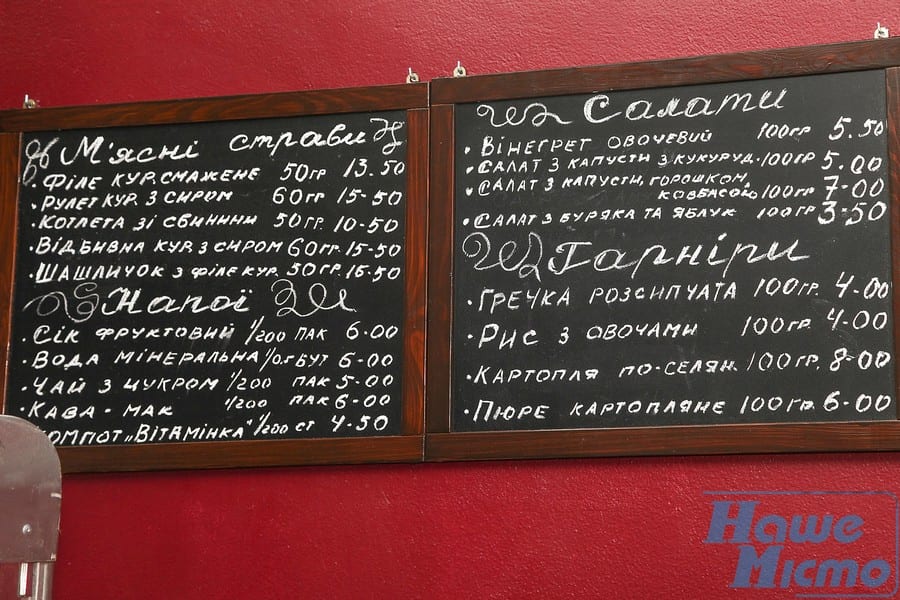 М'ясні страви
· Філе кур. смажене 50гр 13.50
· Рулет кур. з сиром 60гр 15-50
· Котлета зі свинини 50гр. 10-50
· Відбивна кур. з сиром 60гр. 15-50
· Шашличок з філе кур. 50гр. 16.50
Напої
· Сік фруктовий 1/200 пак 6-00
· Вода мінеральна 1/0.5 бут 6-00
· Чай з цукром 1/200 пак 5-00
· Кава - мак 1/200 пак 6-00
омпот „Вітамінка" 1/200 ст 4-50
Салати
· Вінегрет овочевий 100гр 5.50
· Салат з капусти з кукуруд. 100гр 5.00
· Салат з капусти, горошком,
ковбасою 100гр 7-00
· Салат з буряка та яблук 100гр 3-50
Гарніри
· Гречка розсипчата 100гр. 4-00
· Рис з овочами 100гр. 4-00
· Картопля по-селян. 100гр. 8-00
· Пюре картопляне 100гр. 6-00
Наше
Місто